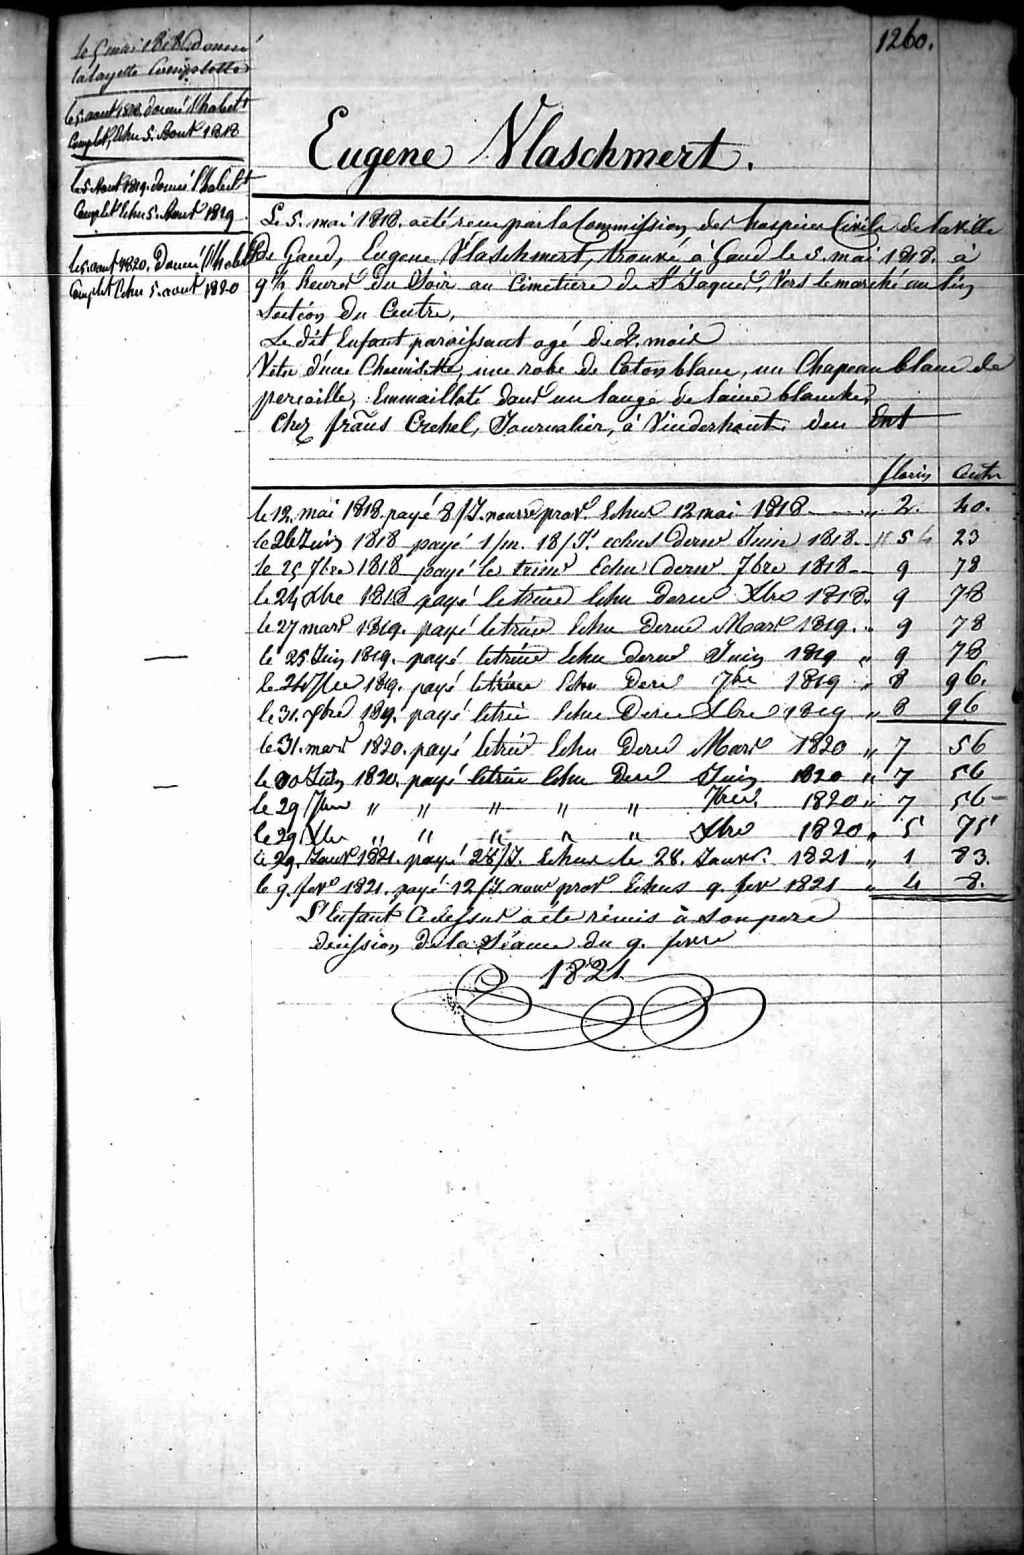 1260.
Le 5 mai 1818 donné
la layette Complette
le 5 aout 1818. donné l'habil.t
Complet, Echu 5. Aout 1818
le 5 Aout 1819. donné l'habil.t
Complet Echu 5. Aout 1819
le 5 aout 1820. Donné l'habil.t
Complet Echu 5. aout 1820
Eugene Vlaschmert.
Le 5. mai 1818. a été recu par la Commission des hospices Civils de la ville
De Gand, Eugene Vlaschmert, trouvé à Gand le 5. mai 1818. à
9½ heures du Soir au Cimetiere de St Jaques, Vers le marché au lin
Section du Centre,
Le dit Enfant paroissant agé de 2. mois
Vetu d'une Chemisette, une robe de Coton blanc, un Chapeau blanc de
percaille, Emmailloté dans un lange de laine blanche,
Chez frans Crehel, Journalier, à Vinderhout. den Ent
florins Cents
le 12. mai 1818. payé 8/J. nourre prov.e Echus 12 mai 1818 " 2. 40.
le 26 Juin 1818 payé 1/m. 18/J.s echus dern Juin 1818. " 5 23
le 25 7bre 1818 payé le trim.e Echu dern 7bre 1818 9 78
le 24 Xbre 1818 payé le trime Echu Dern Xbre 1818. 9 78
le 27 mars 1819. payé le trime Echu Dern Mars 1819. " 9 78
le 25 Juin 1819. payé le trime Echu dern Juin 1819 " 9 78
le 24 7bre 1819. payé le trime Echu Dern 7bre 1819 " 8 96.
le 31. Xbre 1819. payé le trim Echu Dern Xbre 1819 " 8 96
le 31. mars 1820. payé le trim Echu Dern Mars 1820 " 7 56
le 30 Juin 1820. payé le trime Echu Dern Juin 1820 " 7 56
le 29 7bre " " " " " 7bre 1820 " 7 56
le 29 Xbre " " " " " Xbre 1820 " 5 75
le 29. Janv 1821. payé 28/J. Echus le 28. Janvr. 1821 " 1 83.
le 9. fevr 1821. payé 12/J. nour prov.e Echus 9. fev 1821 " 4 8.
L'Enfant Cidessus a été rémis à son pere
décission de la Séance du 9. fevre
1821